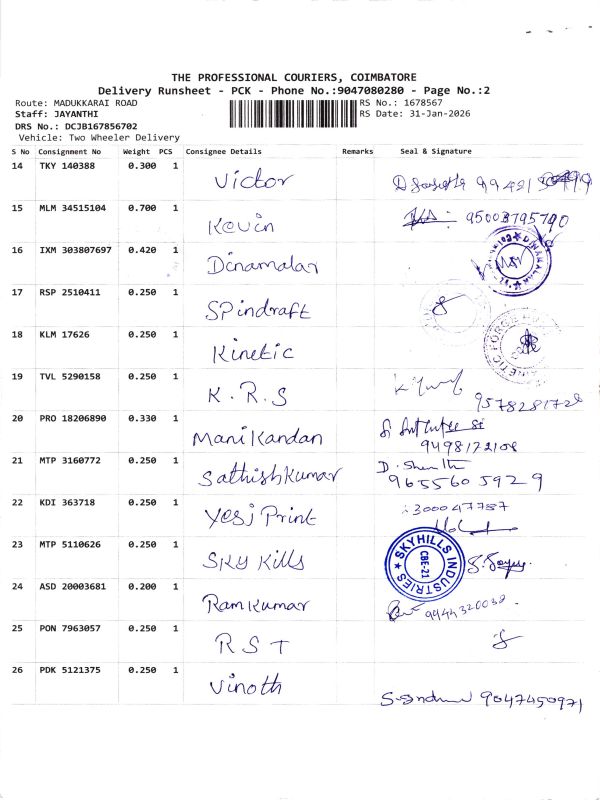 THE PROFESSIONAL COURIERS, COIMBATORE
Delivery Runsheet - PCK - Phone No.:9047080280 - Page No.:2
Route: MADUKKARAI ROAD RS No.: 1678567
Staff: JAYANTHI RS Date: 31-Jan-2026
DRS No.: DCJB167856702
Vehicle: Two Wheeler Delivery
S No Consignment No Weight PCS Consignee Details Remarks Seal & Signature
14 TKY 140388 0.300 1 Victor
15 MLM 34515104 0.700 1 Kevin 95003795790
16 IXM 303807697 0.420 1 Dinamalar
17 RSP 2510411 0.250 1 Spindraft
18 KLM 17626 0.250 1 Kinetic
19 TVL 5290158 0.250 1 K.R.S 9578281728
20 PRO 18206890 0.330 1 Manikandan 9498172108
21 MTP 3160772 0.250 1 Sathishkumar 9655605929
22 KDI 363718 0.250 1 Yesj Print
23 MTP 5110626 0.250 1 Sky Kills SKYHILLS INDUSTRIES CBE-21
24 ASD 20003681 0.200 1 Ramkumar 9944320038
25 PON 7963057 0.250 1 RST
26 PDK 5121375 0.250 1 Vinoth 9047450971